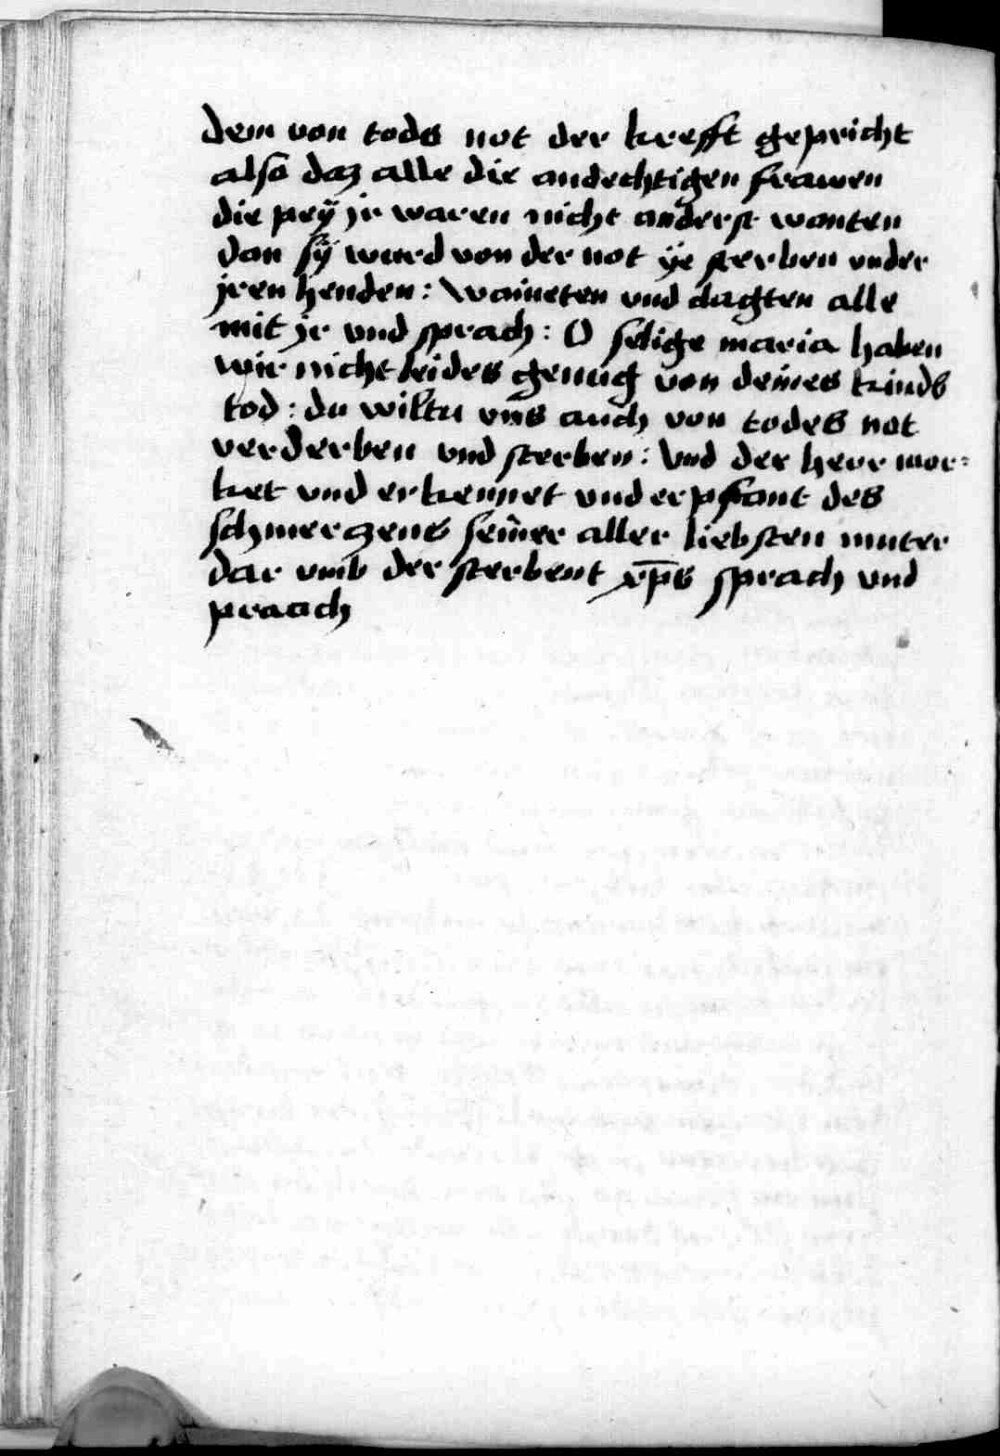 dem von tods not der krefft gepricht
also daz alle die andechtigen frawen
die peÿ jr waren nicht anderst wonten
dan sÿ wurd von der not ÿe sterben vnder
jren henden: Waineten vnd clagten alle
mit jr vnd sprach: O selige maria haben
wir nicht leides genug von deines kinds
tod: du wiltu vns auch von todes not
verderben vnd sterben: Vnd der herr mor=
ket vnd erkennet vnd erpfant des
schmerczens seiner aller liebsten muter
dar vmb der sterbent xp̅s sprach vnd
praach